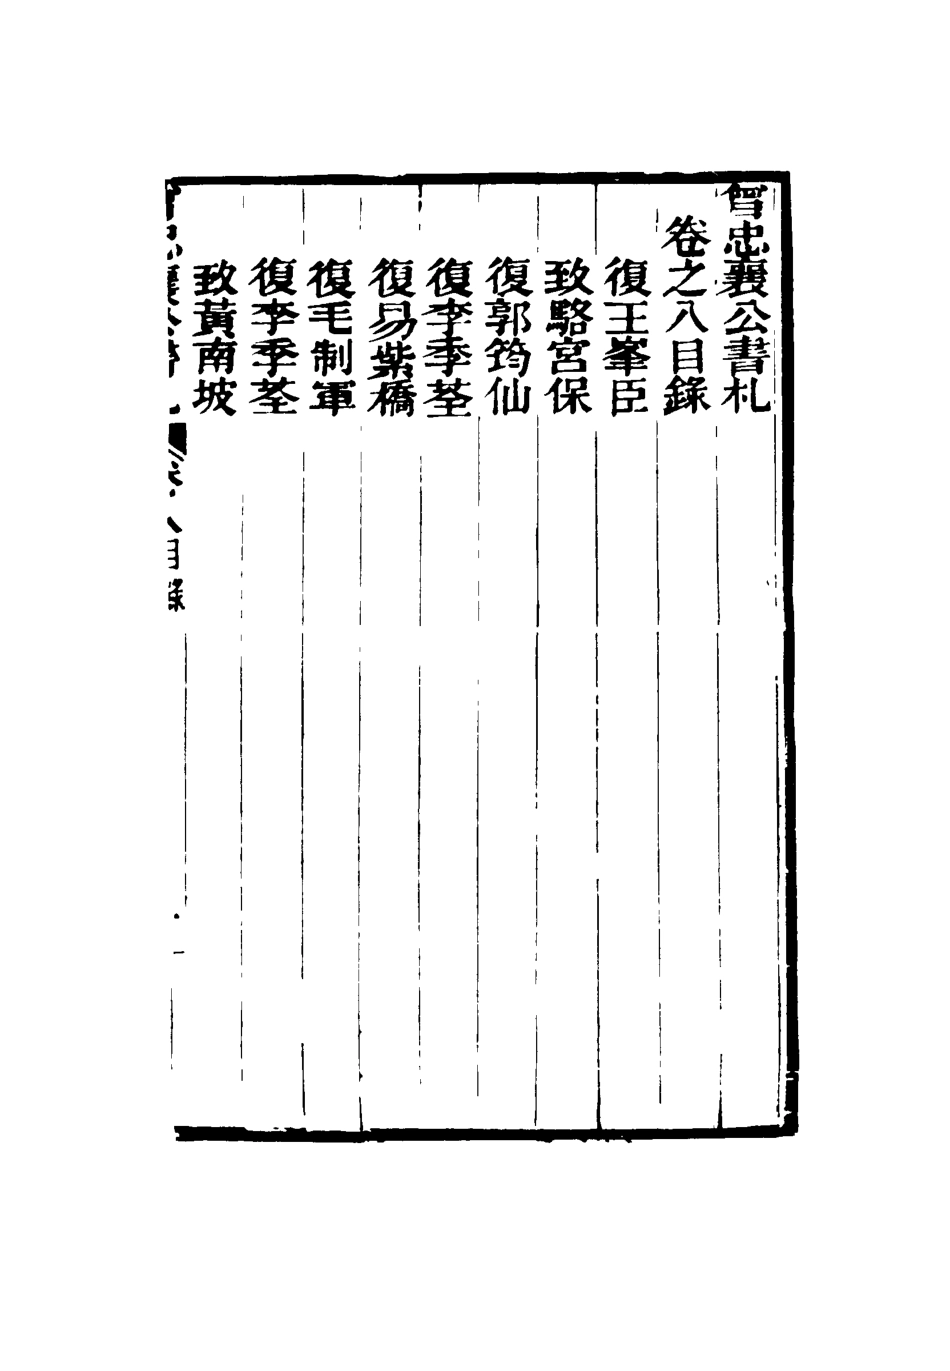 曾忠襄公書札
卷之八目錄
復王峯臣
致駱宮保
復郭筠仙
復李季荃
復易紫橋
復毛制軍
復李季荃
致黃南坡
曾忠襄公書札 卷之八目錄 一